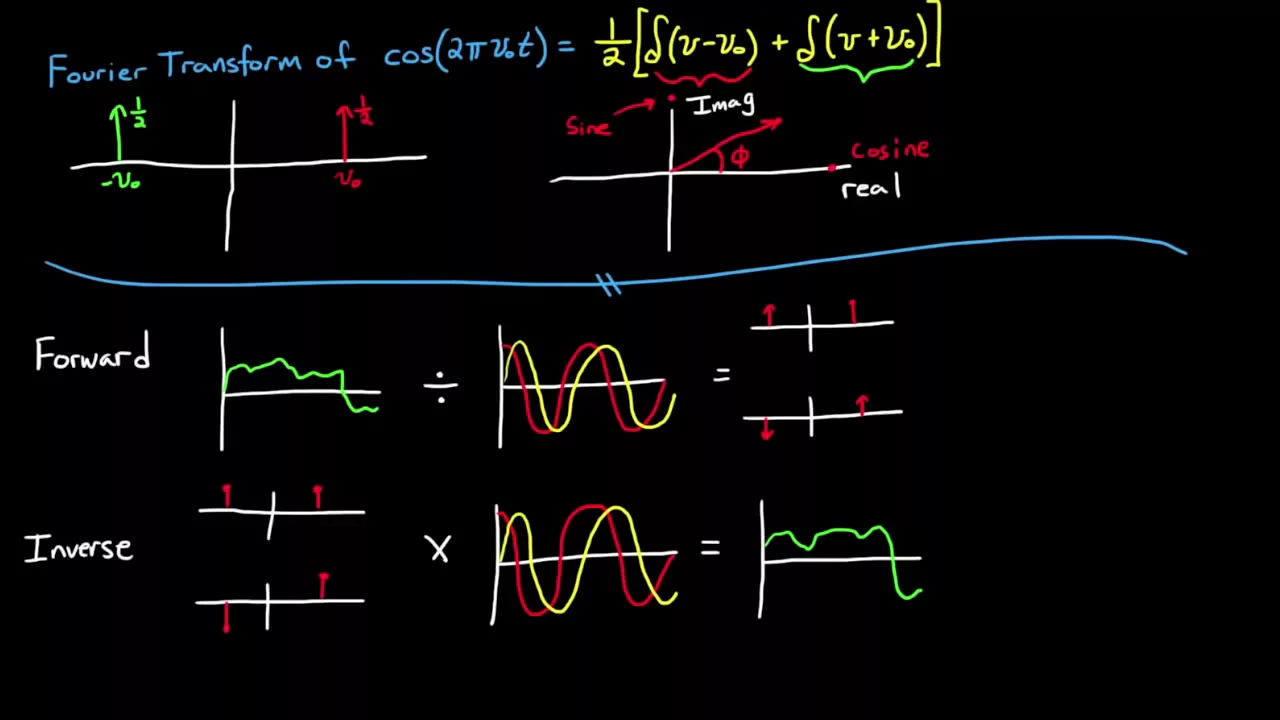 Fourier Transform of cos(2πν₀t) = 1/2[δ(ν-ν₀) + δ(ν+ν₀)]
1/2
1/2
-ν₀
ν₀
Imag
Sine
ϕ
cosine
real
Forward
÷
=
Inverse
X
=